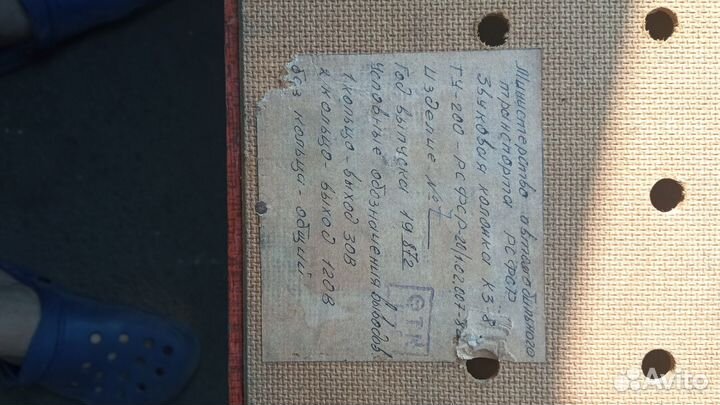 Министерство автомобильного
транспорта РСФСР
Звуковая колонка КЗ-8
ТУ-200-РСФСР-20/1.02.207-8
Изделие № 7
Год выпуска 1987г
Условные обозначения выводов
1 кольцо - выход 30В
2 кольцо - выход 120В
без кольца - общий
ОТК
Avito